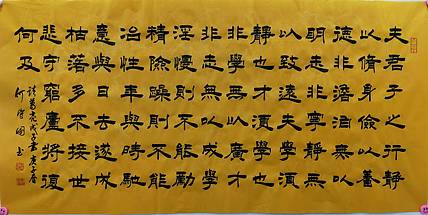 夫君子之行靜
以脩身儉以養
德非澹泊無以
明志非寧靜無
以致遠夫學須
靜也才須學也
非學無以廣才
非志無以成學
淫慢則不能勵
精險躁則不能
冶性年與時馳
意與日去遂成
枯落多不接世
悲守窮廬將復
何及
諸葛亮誡子書庚子春
書